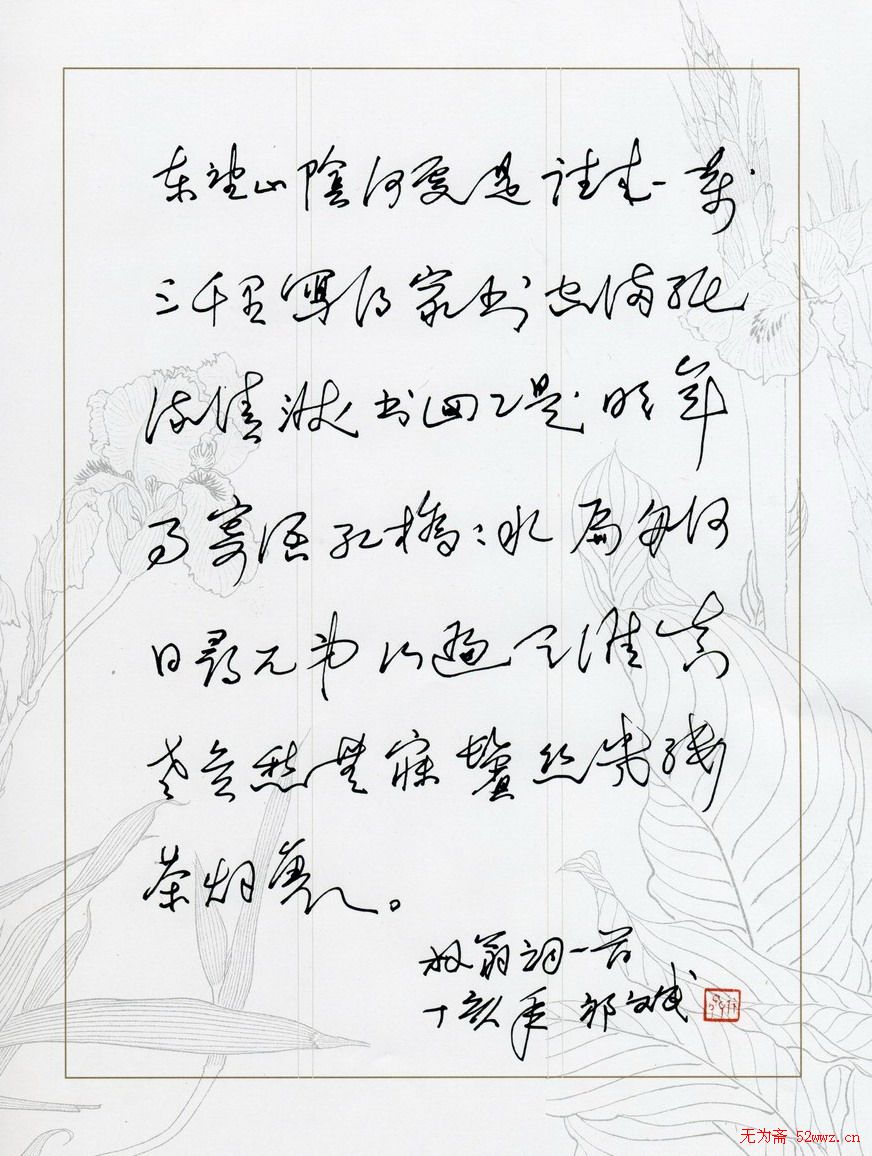 东望山陰何處是往来一萬
三千里寫得家书空满紙
流清淚书回已是明年
事寄语红橋〻水扁舟何
日尋兄弟行遍天涯真
老矣愁無寐鬢丝幾缕
茶烟裏。
放翁词一首
丁亥年
无为斋 52wwz.cn